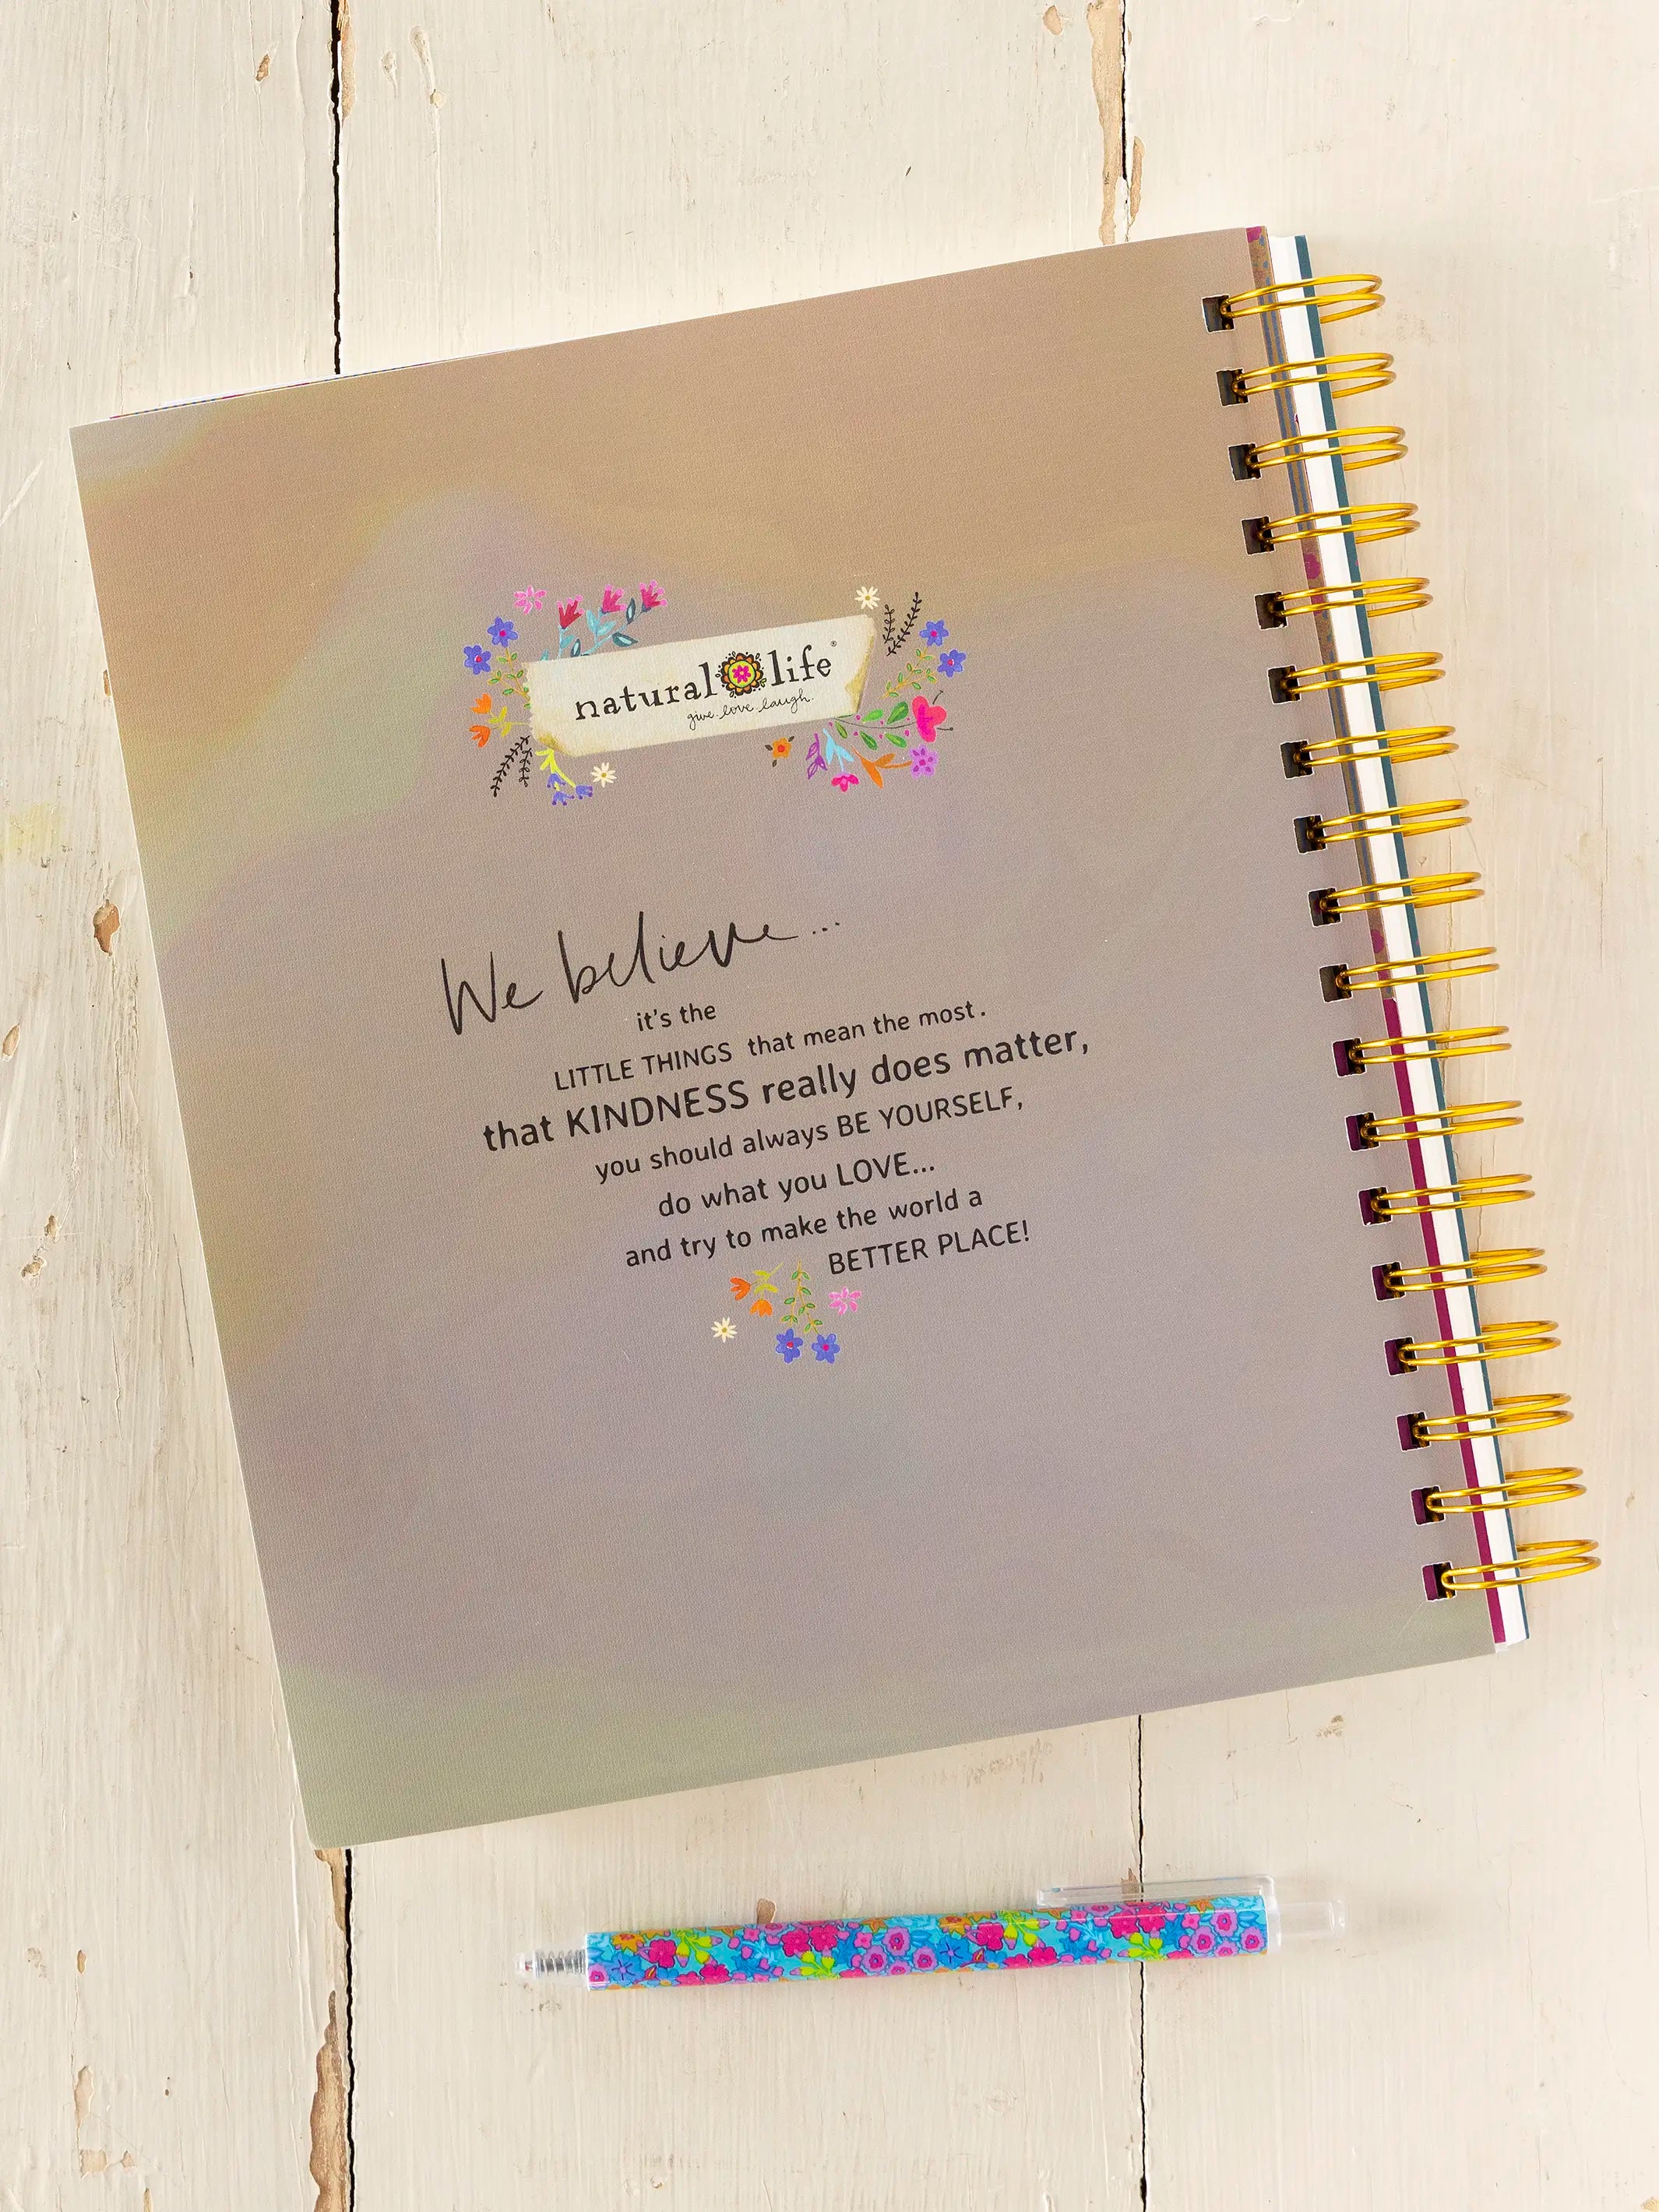 natural life®
give. love. laugh.
We believe...
it's the
LITTLE THINGS that mean the most.
that KINDNESS really does matter,
you should always BE YOURSELF,
do what you LOVE...
and try to make the world a
BETTER PLACE!